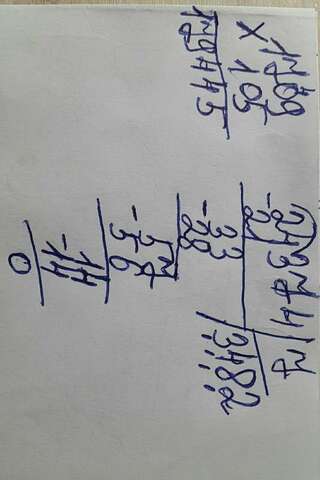 1709
× 105
179445
24374 | 7
-21 | 3482
33
-28
57
-56
14
-14
0